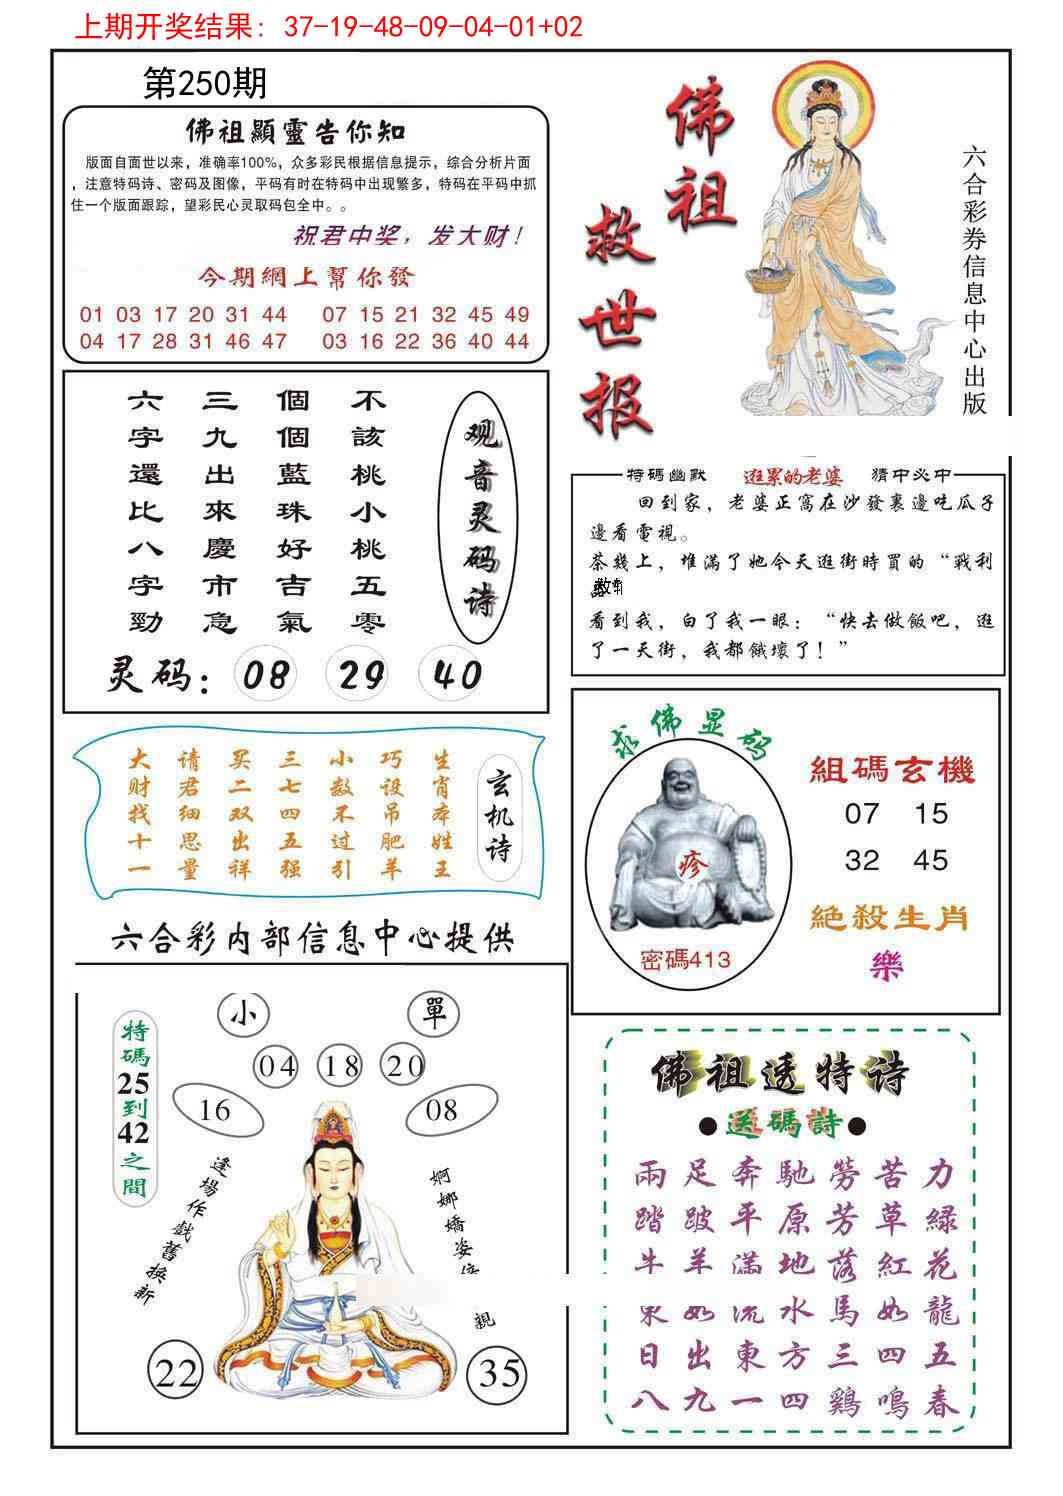 上期开奖结果：37-19-48-09-04-01+02
第250期
佛祖顯靈告你知
版面自面世以来，准确率100%，众多彩民根据信息提示，综合分析片面
，注意特码诗、密码及图像，平码有时在特码中出现繁多，特码在平码中抓
住一个版面跟踪，望彩民心灵取码包全中。。
祝君中奖，发大财！
今期網上幫你發
01 03 17 20 31 44 07 15 21 32 45 49
04 17 28 31 46 47 03 16 22 36 40 44
佛祖
救世报
六合彩券信息中心出版
观音灵码诗
不該桃小桃五零
個個藍珠好吉氣
三九出來慶市急
六字還比八字勁
灵码：08 29 40
特碼幽默 逛累的老婆 猜中必中
回到家，老婆正窩在沙發裏邊吃瓜子
邊看電視。
茶幾上，堆滿了她今天逛街時買的“戰利
看到我，白了我一眼：“快去做飯吧，逛
了一天街，我都餓壞了！”
玄机诗
生肖本姓王
巧设吊肥羊
小数不过引
三七四五强
买二双出祥
请君细思量
大财找十一
求佛显码
疹
密碼413
組碼玄機
07 15
32 45
絕殺生肖
樂
六合彩内部信息中心提供
特碼25到42之間
小 單
04 18 20
16 08
逢場作戲舊換新
婀娜嬌姿
親
22 35
佛祖透特诗
●送碼詩●
兩足奔馳勞苦力
踏跛平原芳草緑
牛羊滿地落紅花
水馬如龍
日出東方三四五
八九一四鷄鳴春